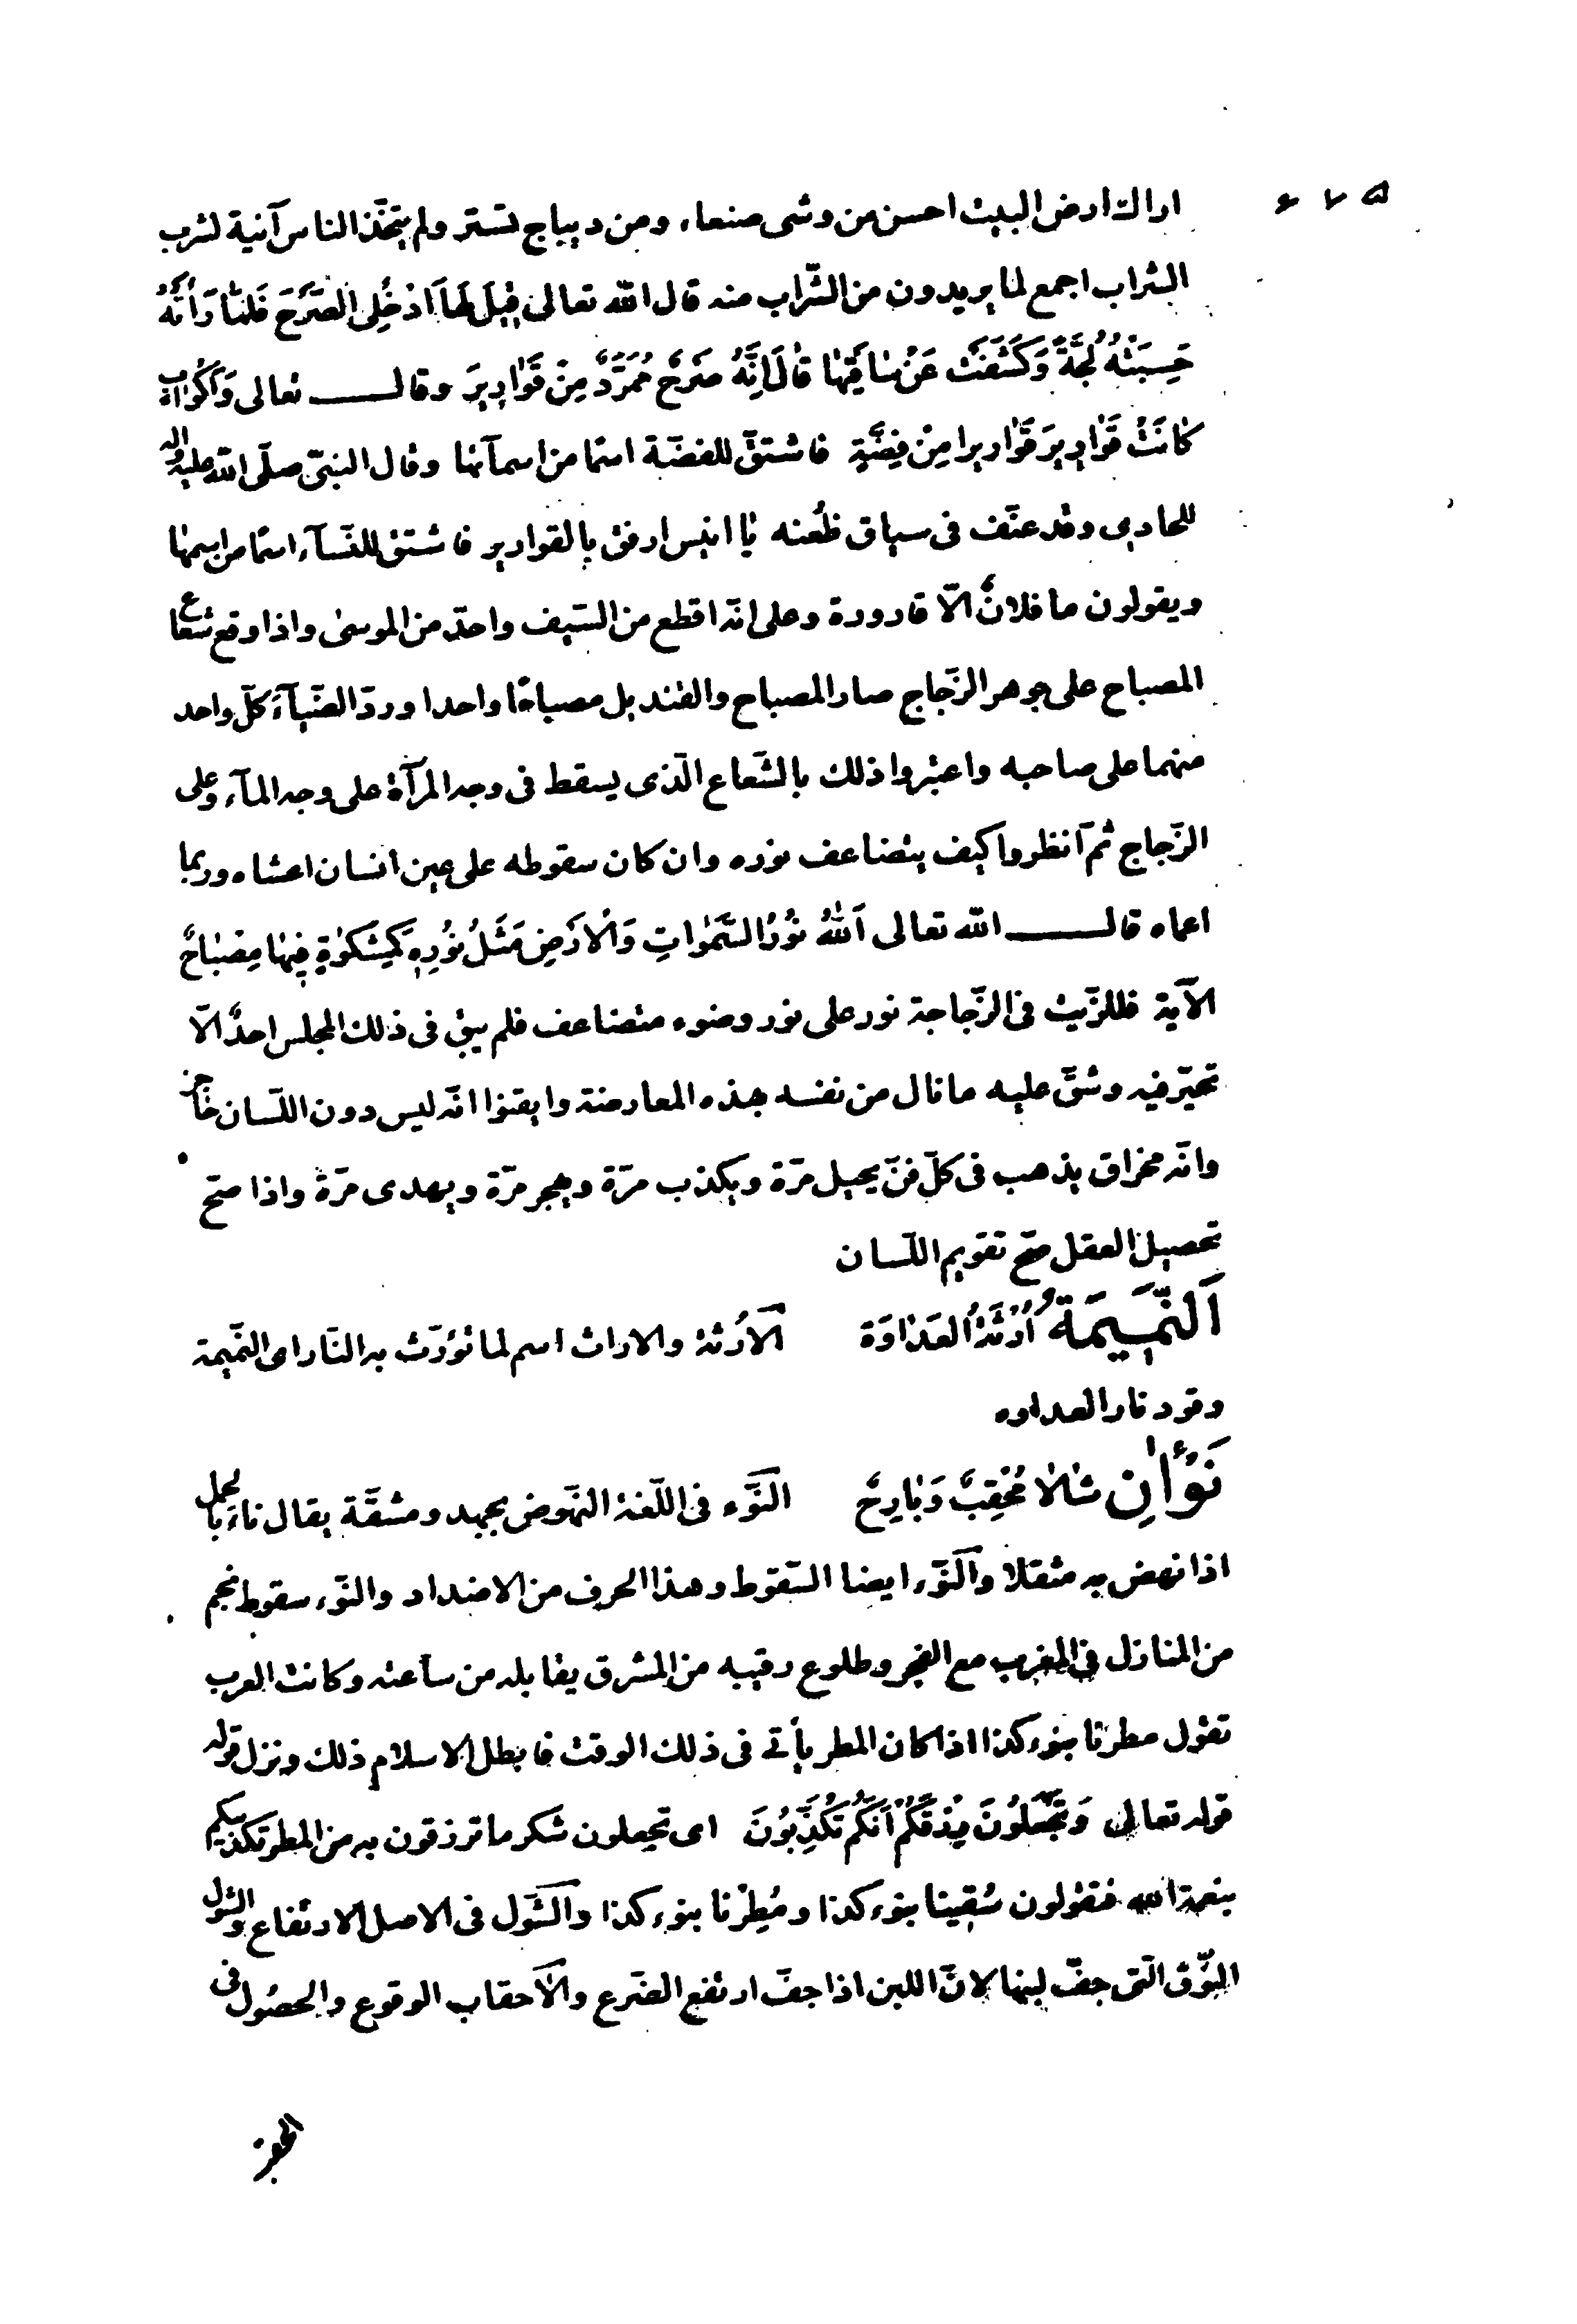 ۶۷۵
اراك ارض البيت احسن من وشى صنعاء ومن ديباج تستر ولم يتخذ الناس آنية لشرب
الشراب اجمع لما يريدون من الشّراب منه قال الله تعالى قِيلَ لَهَا ادْخُلِى الصَّرْحَ فَلَمّا رَأَتْهُ
حَسِبَتْهُ لُجَّةً وَكَشَفَتْ عَنْ سٰاقَيْهٰا قٰالَ اِنَّهُ صَرْحٌ مُمَرَّدٌ مِنْ قَوٰارِيرَ وقال تعالى وَاَكْوٰابٍ
كٰانَتْ قَوٰارِيرَ قَوٰارِيرا مِنْ فِضَّةٍ فاشتقّ للفضّة اسمًا من اسمآئها وقال النبىّ صلّى الله عليه وآله
للحادى وقد عنّف فى سياق ظُعنه يٰا انيس ارفق بالقوارير فاشتق للنّسآء اسمًا من اسمها
ويقولون ما فلانٌ الّا قارورة وعلى انّه اقطع من السّيف واحدّ من الموسىٰ واذا وقع شعاع
المصباح على جوهر الزّجاج صار المصباح والقنديل مصباحًا واحدا وردّ الضّيآءَ كلّ واحد
منهما على صاحبه واعتبروا ذلك بالشّعاع الّذى يسقط فى وجه المرآة على وجه المآء وعلى
الزّجاج ثمّ انظروا كيف يتضاعف نوره وان كان سقوطه على عين انسان اعشاه وربما
اعماه قال الله تعالى اَللهُ نُورُ السَّمٰوٰاتِ وَالْاَرْضِ مَثَلُ نُورِهِ كَمِشْكٰوةٍ فِيهٰا مِصْبٰاحٌ
الآية فللزّيت فى الزّجاجة نور على نور وضوء متضاعف فلم يبق فى ذلك المجلس احدٌ الّا
تحيّر فيه وشقّ عليه ما نال من نفسه بهذه المعارضة وايقنوا انّه ليس دون اللّسان حٰاجز
وانّه مخراق يذهب فى كلّ فنّ يحيل مرّة ويكذب مرّة ويهجر مرّة ويهدى مرّة واذا صحّ
تحصيل العقل صحّ تقويم اللّسان
اَلنَّمِيمَةُ اُرْثَةُ العَدٰاوَة الاُرْثة والاراث اسم لما تؤرّث به النّار اى النّميمة
وقود نار العداوه
نَوْأٰنِ شٰالاٰ مُحْقِبٌ وَبٰارِحٌ النَّوْء فى اللّغة النّهوض بجهد ومشقّة يقال ناءَ بالحمل
اذا نهض به مثقلا والنّوء ايضا السّقوط وهذا الحرف من الاضداد والنّوء سقوط نجم
من المنازل فى المغرب مع الفجر وطلوع رقيبه من المشرق يقابله من ساعته وكانت العرب
تقول مطرنا بنوء كذا اذا كان المطر يأتى فى ذلك الوقت فابطل الاسلام ذلك ونزل قوله
قوله تعالى وَتَجْعَلُونَ رِزْقَكُمْ اَنَّكُمْ تُكَذِّبُونَ اى تجعلون شكر ما ترزقون به من المطر تكذيبكم
بنعمة الله فتقولون سُقِينا بنوء كذا ومُطِرْنا بنوء كذا والشَّول فى الاصل الارتفاع والشول
النُّوق الّتى جفّ لبنها لانّ اللبن اذا جفّ ارتفع الضّرع والاحقاب الوقوع والحصُول فى